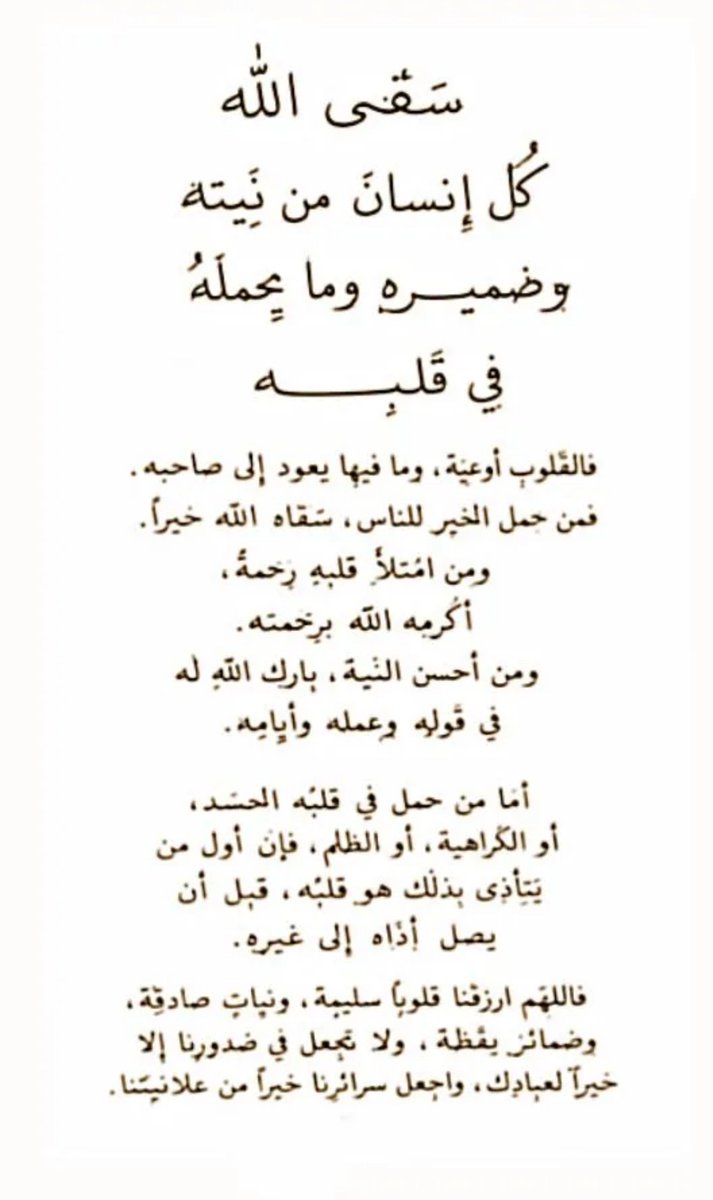 سَقى الله
كُل إِنسانَ من نَيته
وضميره وما يحملَهُ
في قَلبِه
فالقَلوب أوعية، وما فيها يعود إلى صاحبه.
فمن حمل الخير للناس، سَقاه الله خيراً.
ومن امُتلأ قلبه رحمةً،
أكُرمه الله برحمته.
ومن أحسن النية، بارك الله له
في قوله وعمله وأيامه.
أما من حمل في قلبُه الحسَد،
أو الكَراهية، أو الظلم، فإن أول من
يَتأذى بذلك هو قلبُه، قبل أن
يصل أذاه إلى غيره.
فاللهم ارزقنا قلوباً سليمة، ونيات صادقة،
وضمائر يقظة، ولا تجعل في صدورنا إلا
خيراً لعبادك، واجعل سرائرنا خيراً من علانيتنا.